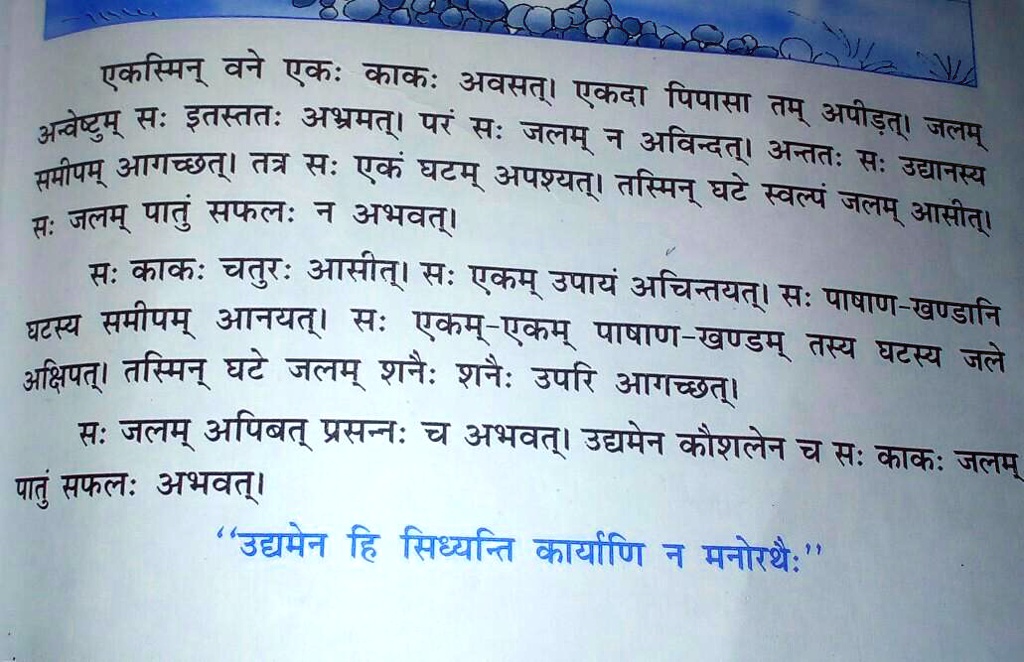 एकस्मिन् वने एकः काकः अवसत्। एकदा पिपासा तम् अपीड़त्। जलम्
अन्वेष्टुम् सः इतस्ततः अभ्रमत्। परं सः जलम् न अविन्दत्। अन्ततः सः उद्यानस्य
समीपम् आगच्छत्। तत्र सः एकं घटम् अपश्यत्। तस्मिन् घटे स्वल्पं जलम् आसीत्।
सः जलम् पातुं सफलः न अभवत्।
सः काकः चतुरः आसीत्। सः एकम् उपायं अचिन्तयत्। सः पाषाण-खण्डानि
घटस्य समीपम् आनयत्। सः एकम्-एकम् पाषाण-खण्डम् तस्य घटस्य जले
अक्षिपत्। तस्मिन् घटे जलम् शनैः शनैः उपरि आगच्छत्।
सः जलम् अपिबत् प्रसन्नः च अभवत्। उद्यमेन कौशलेन च सः काकः जलम्
पातुं सफलः अभवत्।
‘‘उद्यमेन हि सिध्यन्ति कार्याणि न मनोरथैः’’